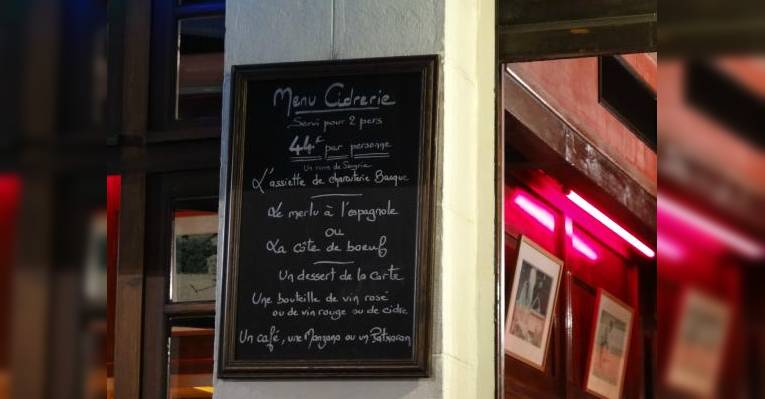 Menu Cidrerie
Servi pour 2 pers
44€ par personne
Un verre de Sangria
L'assiette de charcuterie Basque
Le merlu à l'espagnole
ou
La côte de boeuf
Un dessert de la carte
Une bouteille de vin rosé
ou de vin rouge ou de cidre
Un café, une Manzana ou un Patxaran